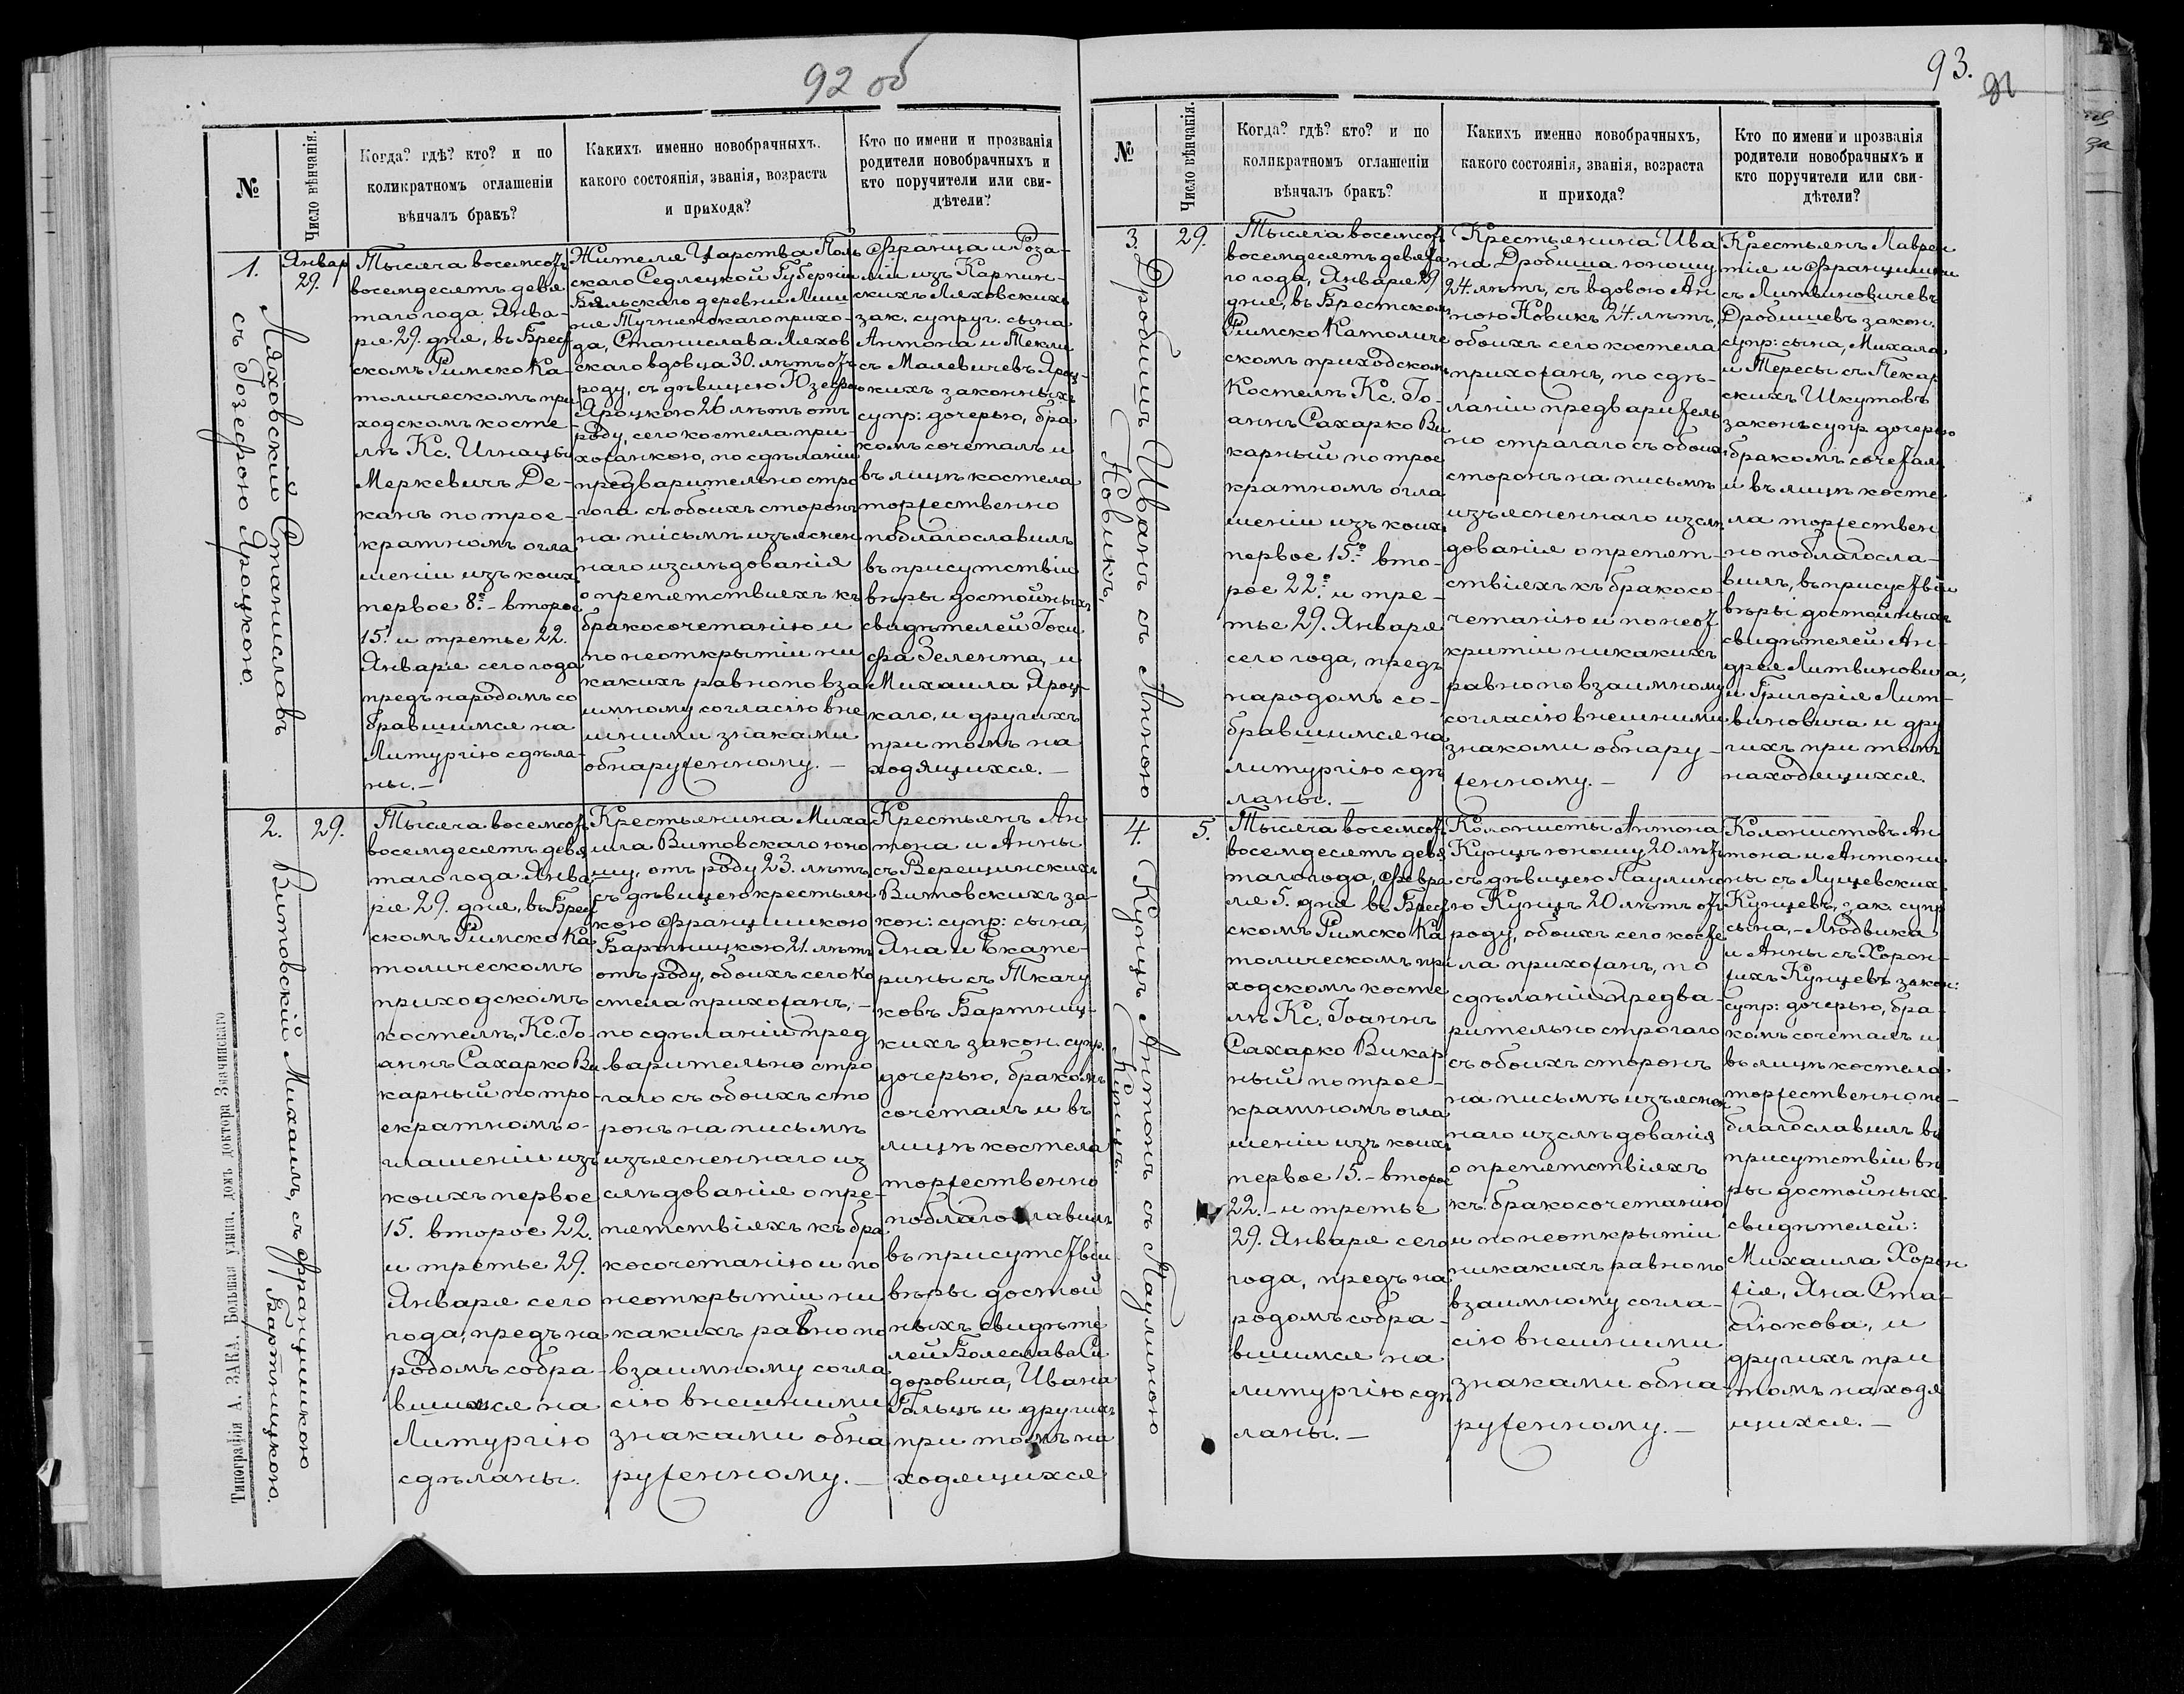 92 об
№
Число вѣнчанія.
Когда? гдѣ? кто? и по
коликратномъ оглашеніи
вѣнчалъ бракъ?
Какихъ именно новобрачныхъ,
какого состоянія, званія, возраста
и прихода?
Кто по имени и прозванія
родители новобрачныхъ и
кто поручители или сви-
дѣтели?
1.
Январ
29.
Ляховскій Станиславъ
съ Іозефою Яроцкою.
Тысяча восемсотъ
восемдесятъ девя
таго года Янва-
ря 29. дня, въ Брест
скомъ Римско Ка-
толическомъ при
ходскомъ косте-
лѣ Кс. Игнацы
Меркевичъ Де-
канъ по трое-
кратномъ огла
шеніи изъ коихъ
первое 8.º- второе
15.º и третье 22.
Января сего года
предъ народомъ со
бравшимся на
Литургію сдѣла-
ны.-
Жителя Царства Поль
скаго Седлецкой Губерніи
Бяльскаго деревни Лиш
ня Тучнянскаго прихо-
да, Станислава Ляхов
скаго вдовца 30. лѣтъ отъ
роду, съ дѣвицею Юзефою
Яроцкою 26 лѣтъ отъ
роду, сего костела при-
хожанкою, по сдѣланіи
предварительно стро
гога съ обоихъ сторонъ
на письмѣ изъяснен
наго изслѣдованія
о препятствіяхъ къ
бракосочетанію и
по неоткрытіи ни
какихъ равно по вза
имному согласію внѣ
шними знаками
обнаруженному.-
Франца и Роза-
ліи изъ Карпин-
скихъ Ляховскихъ
зак. супруг. сына
Антона и Текли
съ Малевичевъ Яроц-
кихъ законныхъ
супр: дочерью, бра
комъ сочеталъ и
въ лицѣ костела
торжественно
поблагославилъ
въ присутствіи
вѣры достойныхъ
свидѣтелей Іоси
фа Зелента, и
Михаила Яроц-
каго, и другихъ
при томъ на
ходящихся.-
2.
29.
Витовскій Михаилъ, съ Францишкою
Бартницкою.
Тысяча восемсотъ
восемдесятъ девя
таго года Янва
ря 29. дня, въ Брест
скомъ Римско Ка
толическомъ
приходскомъ
костелѣ, Кс. Іо-
аннъ Сахарко Ви
карный по тро-
екратномъ о-
глашеніи изъ
коихъ первое
15. второе 22.
и третье 29.
Января сего
года, предъ на
родомъ собра-
вшимся на
Литургію
сдѣланы.
Крестьянина Миха
ила Витовскаго юно
шу, отъ роду 23. лѣтъ
съ дѣвицею крестьян
кою Францишкою
Бартницкою 21. лѣтъ
отъ роду, обоихъ сего ко
стела прихожанъ,-
по сдѣланіи пред
варительно стро
гаго съ обоихъ сто
ронъ на письмѣ
изъясненнаго из
слѣдованія о пре-
пятствіяхъ къ бра
косочетанію и по
неоткрытіи ни
какихъ равно по
взаимному согла
сію внешними
знаками обна
руженному.-
Крестьянъ Ан
тона и Анны
съ Верещинскихъ
Витовскихъ за-
кон: супр: сына,
Яна и Екате-
рины съ Ткачу
ковъ Бартниц-
кихъ закон. супр.
дочерью, бракомъ
сочеталъ и въ
лицѣ костела
торжественно
поблагославилъ
въ присутствіи
вѣры достой
ныхъ свидѣте
лей Болеслава Си
доровича, Ивана
Гольцъ и другихъ
при томъ на
ходящихся
Типографія А. ЗАКА. Большая улица, домъ доктора Значинскаго
93.
№
Число вѣнчанія.
Когда? гдѣ? кто? и по
коликратномъ оглашеніи
вѣнчалъ бракъ?
Какихъ именно новобрачныхъ,
какого состоянія, званія, возраста
и прихода?
Кто по имени и прозванія
родители новобрачныхъ и
кто поручители или сви-
дѣтели?
3.
29.
Дробишъ Иванъ съ Анною
Новикъ,
Тысяча восемсотъ
восемдесятъ девята
го года, Января 29
дня, въ Брестскомъ
Римско Католиче
скомъ приходскомъ
Костелѣ Кс. Іо-
аннъ Сахарко Ви
карный по трое
кратномъ огла
шеніи изъ коихъ
первое 15.º вто-
рое 22.º и тре-
тье 29. Января
сего года, предъ
народомъ со-
бравшимся на
литургію сдѣ
ланы.-
Крестьянина Ива
на Дробиша юношу
24. лѣтъ, съ вдовою Ан
ною Новикъ 24. лѣтъ,
обоихъ сего костела
прихожанъ, по сдѣ-
ланіи предваритель
но строгаго съ обоихъ
сторонъ на письмѣ
изъясненнаго изслѣ
дованія о препят-
ствіяхъ къ бракосо-
четанію и по неот
критіи никакихъ
равно по взаимному
согласію внешними
знакоми обнару-
женному.-
Крестьянъ Лаврен
тія и Францишки
съ Литвиновичевъ
Дробишевъ закон.
супр: сына, Михала
и Тересы съ Пекар
скихъ Шкутовъ
законъ супр дочерью
бракомъ сочеталъ
и въ лицѣ косте
ла торжествен
но поблагосла-
вилъ, въ присуствіи
вѣры достойныхъ
свидѣтелей Ан-
дрея Литвиновича,
и Григорія Лит-
виновича и дру
гихъ при томъ
находящихся.
4.
5.
Кунцъ Антонъ съ Паулиною
Кунцъ
Тысяча восемсотъ
восемдесятъ девя
таго года, Февра
ля 5. дня въ Брест
скомъ Римско Ка
толическомъ при
ходскомъ косте
лѣ Кс. Іоаннъ
Сахарко Викар
ный по трое-
кратномъ огла
шеніи изъ коихъ
первое 15.- второе
22.- и третье
29. Января сего
года, предъ на
родомъ собра-
вшимся на
литургію сдѣ
ланы.-
Колонисты Антона
Кунцъ юношу 20 лѣтъ
съ дѣвицею Паулино
ю Кунцъ 20 лѣтъ отъ
роду, обоихъ сего косте
ла прихожанъ, по
сдѣланіи предва-
рительно строгаго
съ обоихъ сторонъ
на письмѣ изъяснен
наго изслѣдованія
о препятствіяхъ
къ бракосочетанію
и по неоткрытіи
никакихъ равно по
взаимному согла-
сію внешними
знаками обна-
руженному.-
Колонистовъ Ан
тона и Антони
ны съ Лущевскихъ
Кунцевъ, зак. супр
сына,- Людвика
и Анны съ Хорон-
жихъ Кунцевъ закон:
супр: дочерью, бра-
комъ сочеталъ и
въ лицѣ костела
торжественно по-
благославилъ въ
присутствіи вѣ
ры достойныхъ
свидѣтелей:
Михаила Хорон
жія, Яна Ста-
сюкова, и
другихъ при
томъ находя
щихся.-